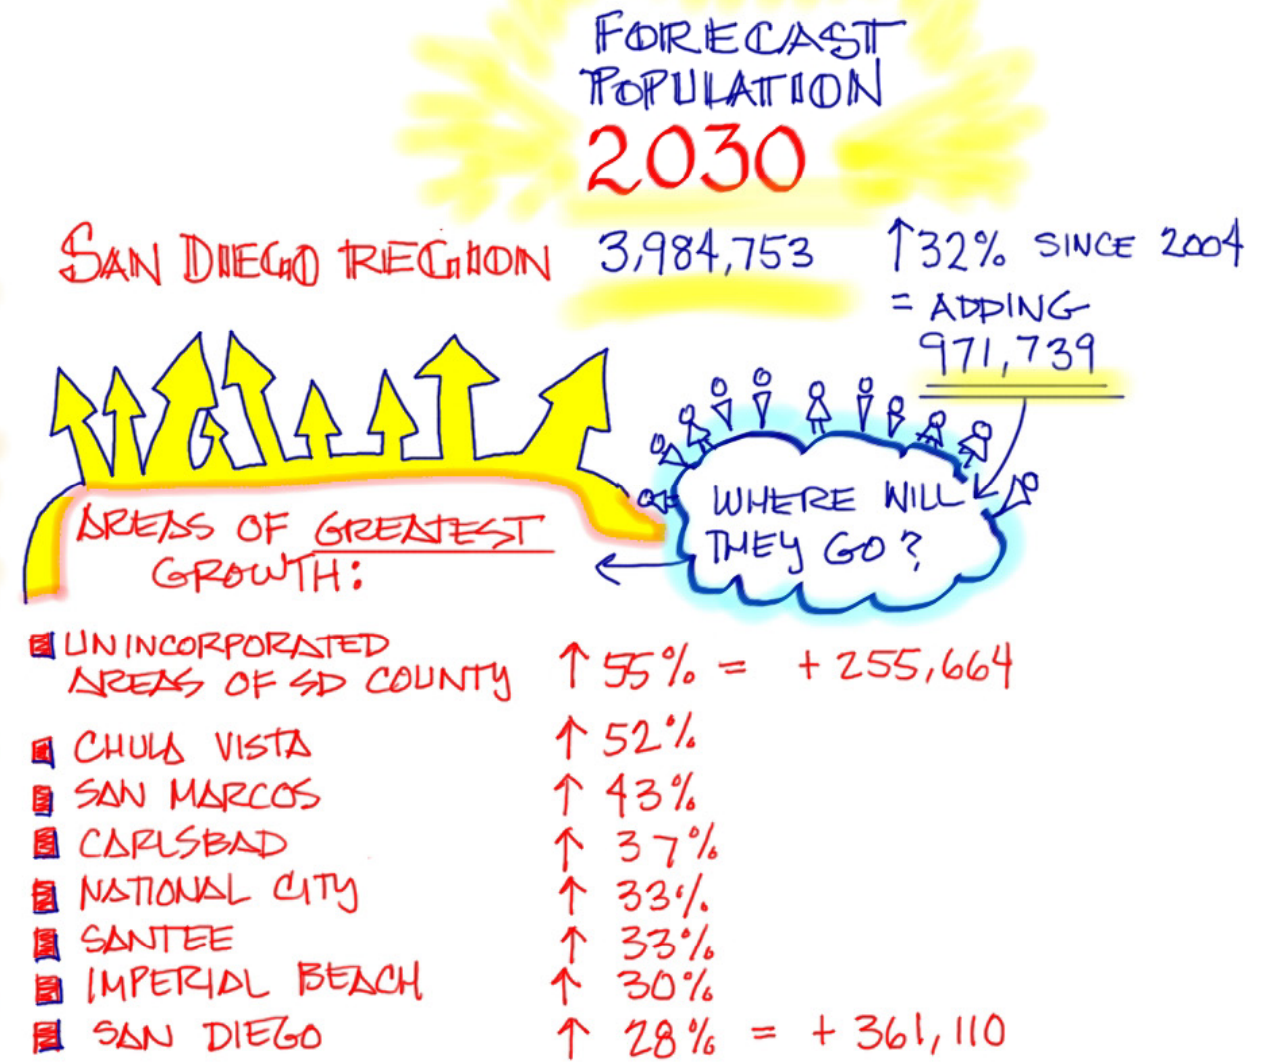 FORECAST
POPULATION
2030
SAN DIEGO REGION 3,984,753 ↑32% SINCE 2004
= ADDING
971,739
WHERE WILL
THEY GO?
AREAS OF GREATEST
GROWTH:
UNINCORPORATED
AREAS OF SD COUNTY ↑ 55% = + 255,664
CHULA VISTA ↑ 52%
SAN MARCOS ↑ 43%
CARLSBAD ↑ 37%
NATIONAL CITY ↑ 33%
SANTEE ↑ 33%
IMPERIAL BEACH ↑ 30%
SAN DIEGO ↑ 28% = + 361,110